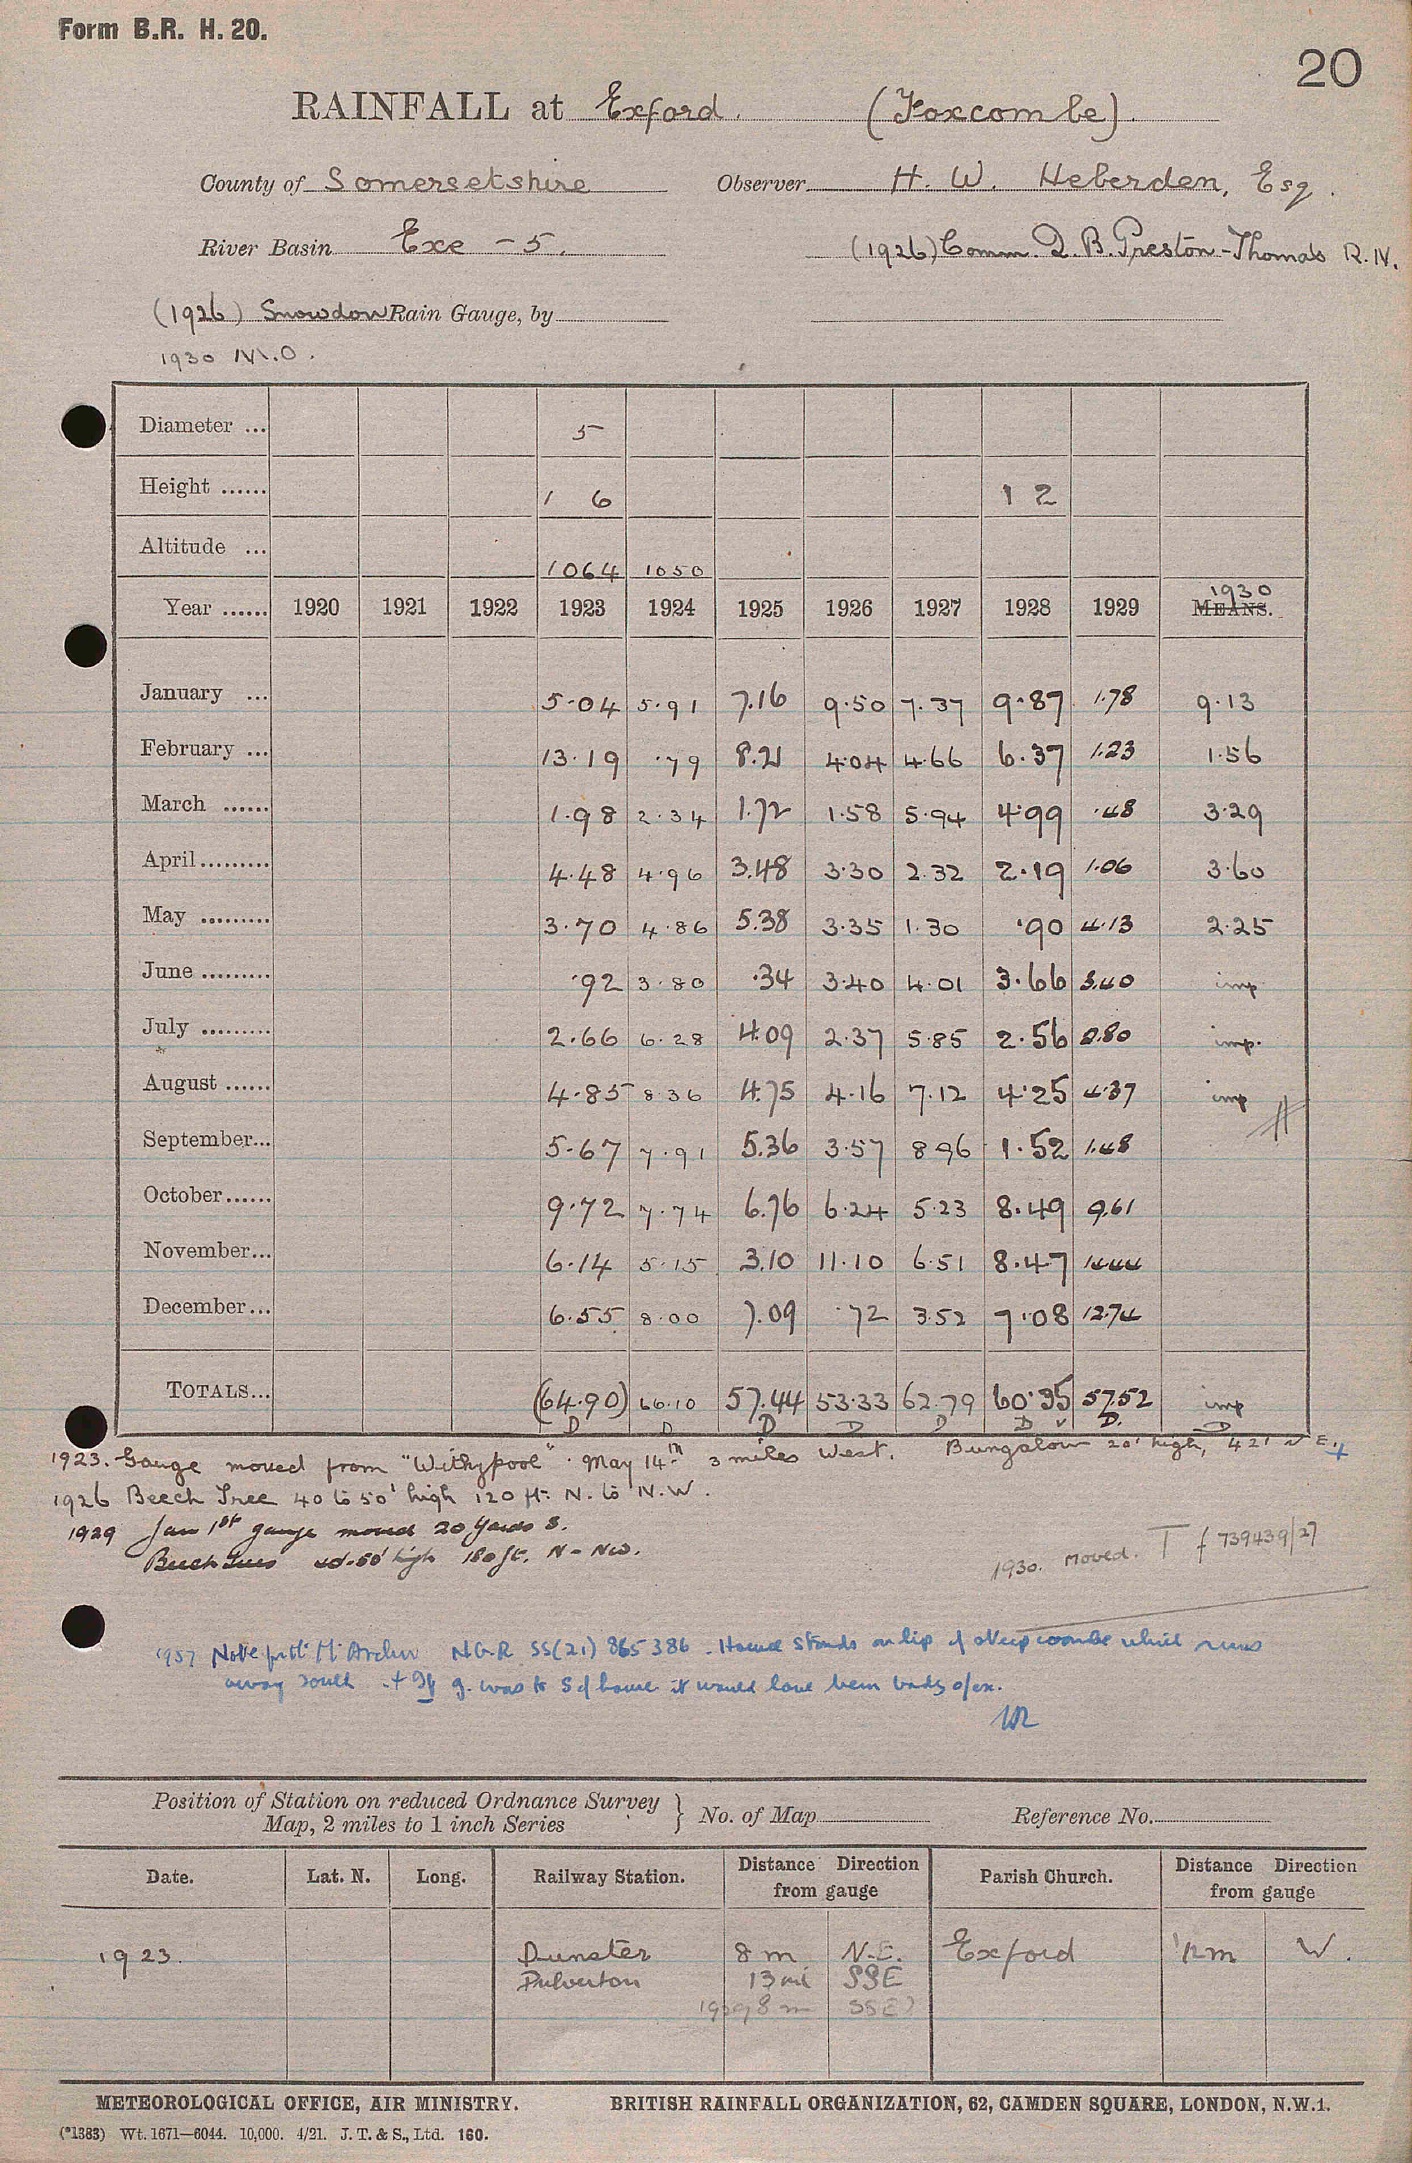 Form B.R. H. 20.
20
RAINFALL at Exford. (Foxcombe).
County of Somersetshire Observer H. W. Heberden, Esq.
River Basin Exe - 5. (1926) Comm. D. B. Preston-Thomas R.N.
(1926) Snowdon Rain Gauge, by
1930 M.O.
Diameter ... 5
Height ...... 1 6 1 2
Altitude ... 1064 1050
Year ...... 1920 1921 1922 1923 1924 1925 1926 1927 1928 1929 1930 MEANS.
January ... 5.04 5.91 7.16 9.50 7.37 9.87 1.78 9.13
February ... 13.19 .79 8.21 4.04 4.66 6.37 1.23 1.56
March ...... 1.98 2.34 1.72 1.58 5.94 4.99 .48 3.29
April ......... 4.48 4.96 3.48 3.30 2.32 2.19 1.06 3.60
May ......... 3.70 4.86 5.38 3.35 1.30 .90 4.13 2.25
June ......... .92 3.80 .34 3.40 4.01 3.66 3.40 imp
July ......... 2.66 6.28 4.09 2.37 5.85 2.56 2.80 imp.
August ...... 4.85 8.36 4.75 4.16 7.12 4.25 4.37 imp
September... 5.67 7.91 5.36 3.57 8.96 1.52 1.48
October...... 9.72 7.74 6.76 6.24 5.23 8.49 9.61
November... 6.14 5.15 3.10 11.10 6.51 8.47 14.44
December... 6.55 8.00 7.09 .72 3.52 7.08 12.74
TOTALS... (64.90) 66.10 57.44 53.33 62.79 60.35 57.52 imp
D D D D D D D. D
1923. Gauge moved from "Withypool". May 14th 3 miles West. Bungalow 20' high, 42' N E. +
1926 Beech Tree 40 to 50' high 120 ft. N. to N.W.
1929 Jan 1st gauge moved 20 Yards S.
Beech trees 40-50' high 180 ft. N - NW.
1930. moved. T f 739439/27
1957 Note NGR SS(21) 865386. House stands on lip of steep coombe which runs
away south. + If g. was to S of house it would have been
Position of Station on reduced Ordnance Survey Map, 2 miles to 1 inch Series } No. of Map Reference No.
Date. Lat. N. Long. Railway Station. Distance Direction from gauge Parish Church. Distance Direction from gauge
1923. Dunster 8 m N.E. Exford 1/2 m W.
Dulverton 13 mi SSE
1929 8 m SSE?
METEOROLOGICAL OFFICE, AIR MINISTRY. BRITISH RAINFALL ORGANIZATION, 62, CAMDEN SQUARE, LONDON, N.W.1.
(*1383) Wt. 1671—6044. 10,000. 4/21. J. T. & S., Ltd. 160.